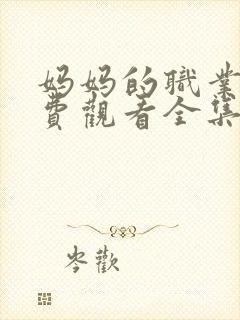 妈妈的職業
費觀看全集
岑歡